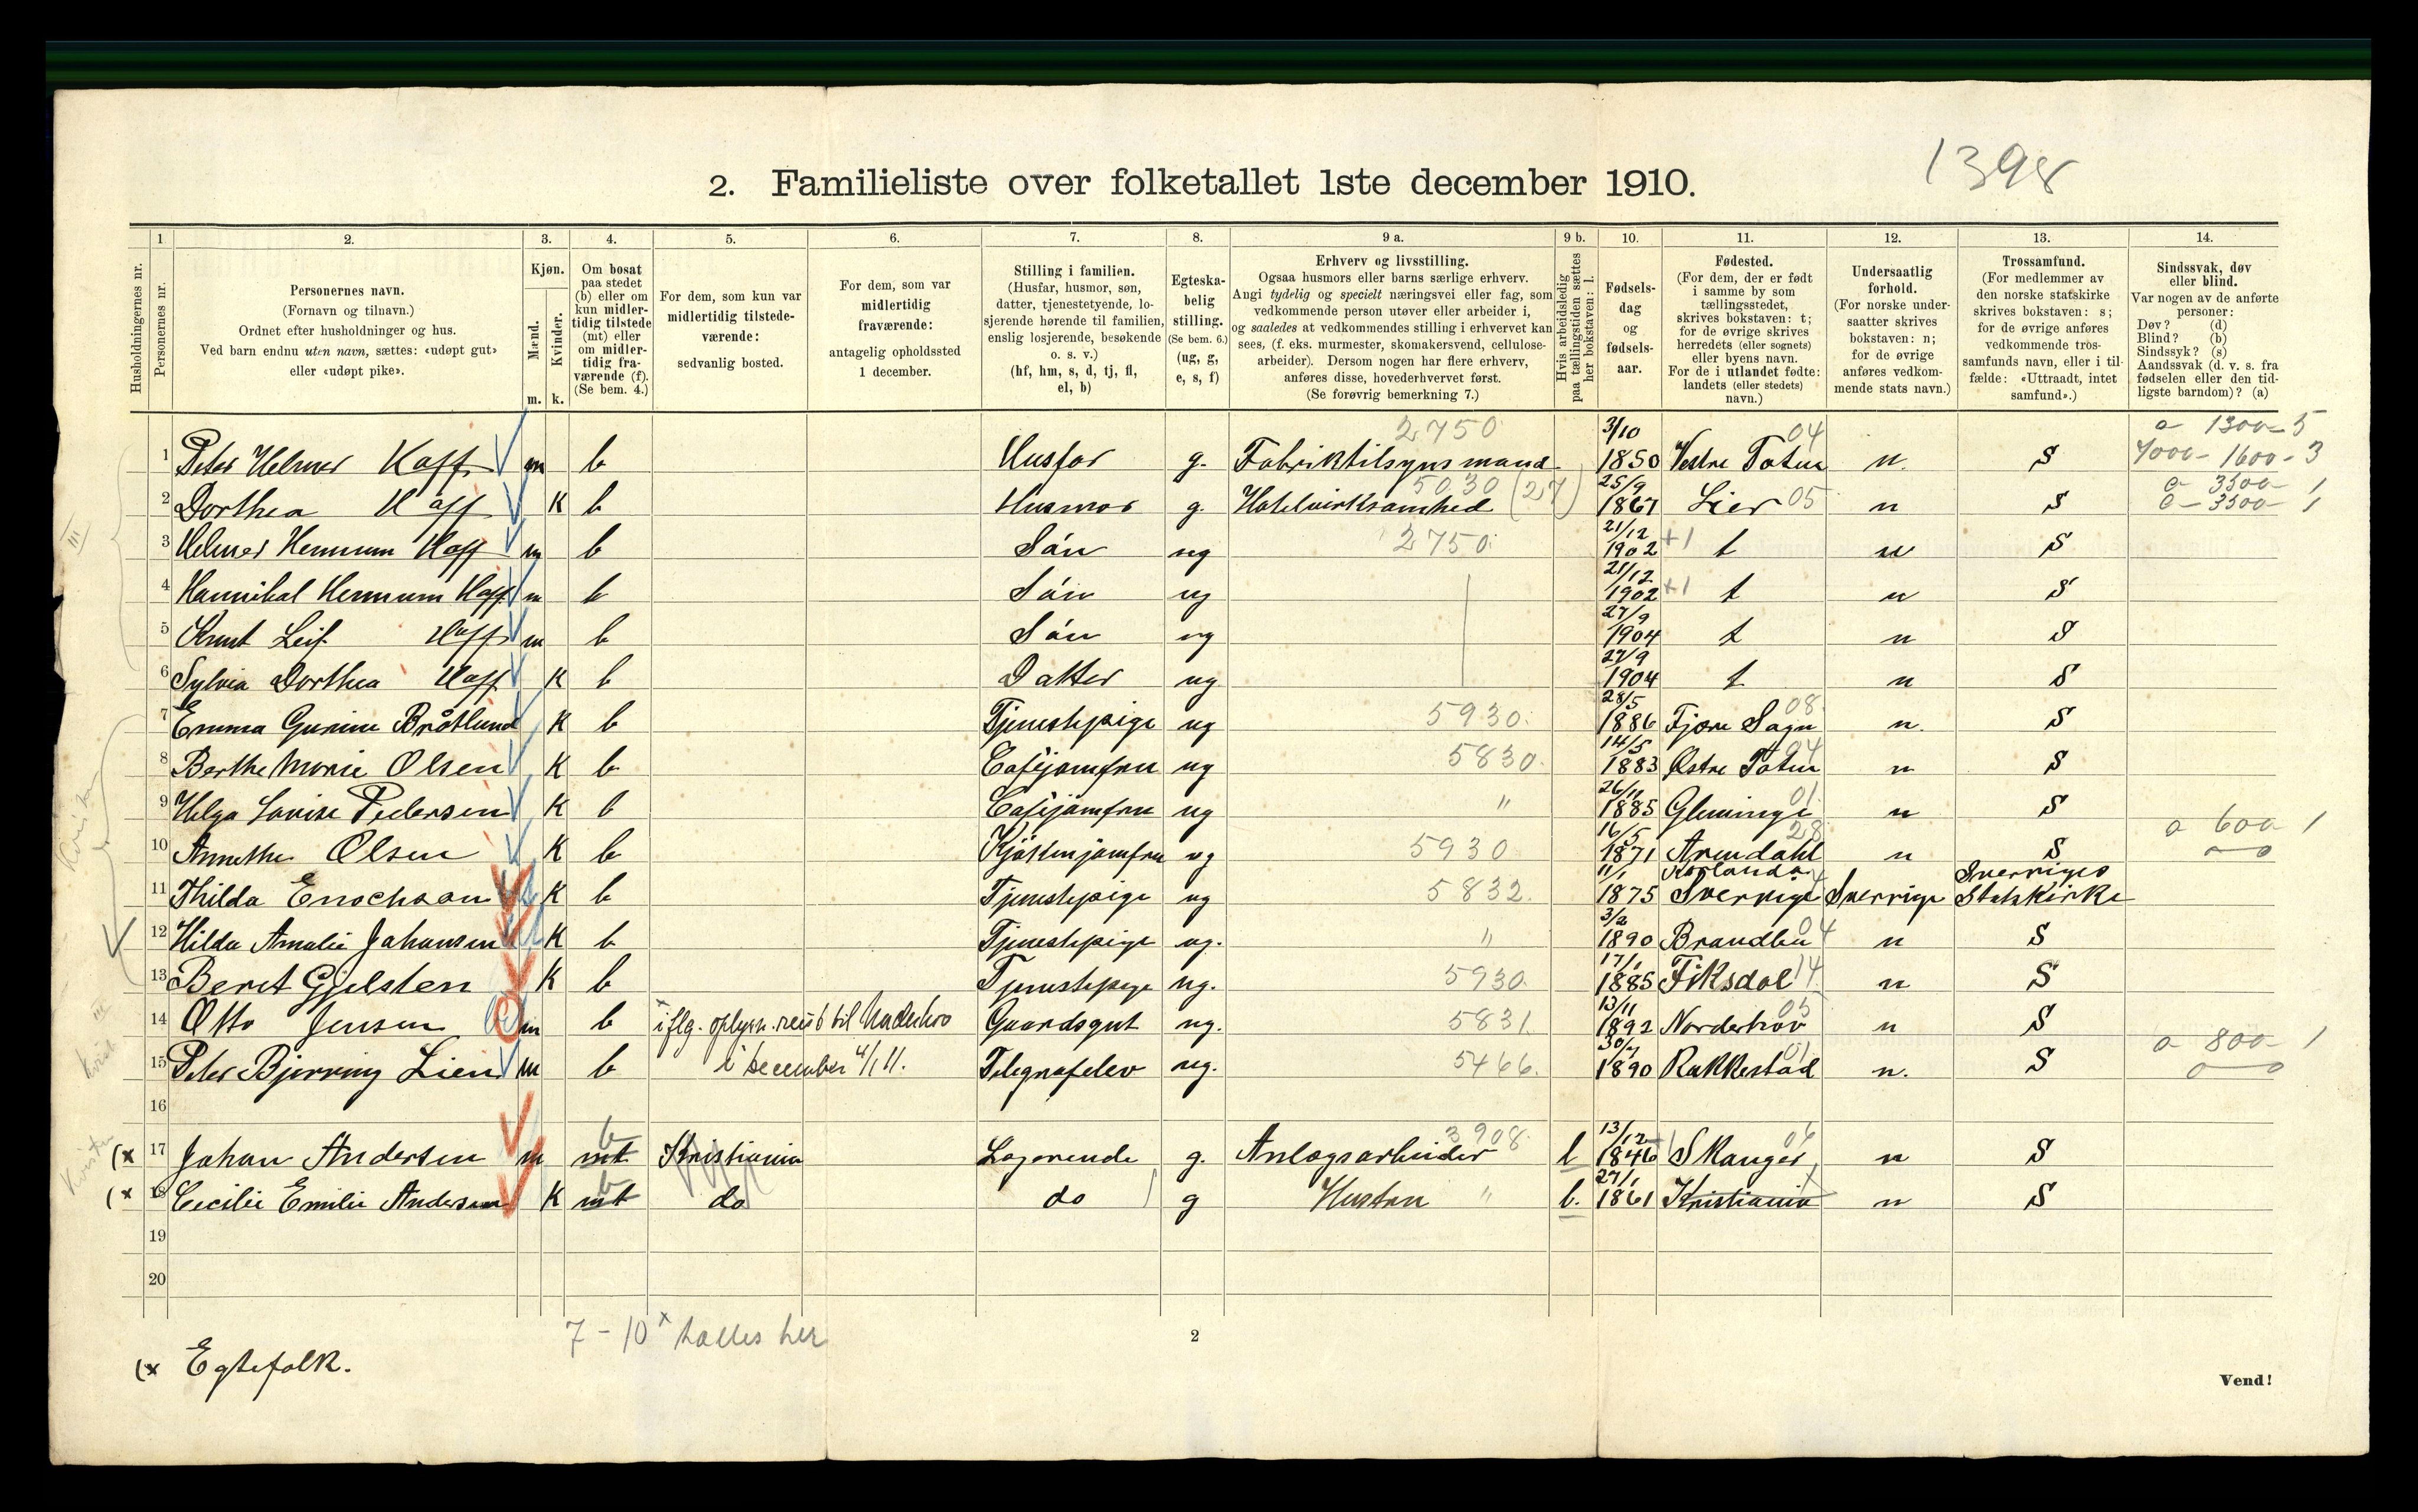 1398
2. Familieliste over folketallet 1ste december 1910.
1. 2. 3. 4. 5. 6. 7. 8. 9 a. 9 b. 10. 11. 12. 13. 14.
Husholdningernes nr.
Personernes nr.
Personernes navn.
(Fornavn og tilnavn.)
Ordnet efter husholdninger og hus.
Ved barn endnu uten navn, sættes: «udøpt gut»
eller «udøpt pike».
Kjøn.
Mænd.
Kvinder.
m. k.
Om bosat
paa stedet
(b) eller om
kun midler-
tidig tilstede
(mt) eller
om midler-
tidig fra-
værende (f).
(Se bem. 4.)
For dem, som kun var
midlertidig tilstede-
værende:
sedvanlig bosted.
For dem, som var
midlertidig
fraværende:
antagelig opholdssted
1 december.
Stilling i familien.
(Husfar, husmor, søn,
datter, tjenestetyende, lo-
sjerende hørende til familien,
enslig losjerende, besøkende
o. s. v.)
(hf, hm, s, d, tj, fl,
el, b)
Egteska-
belig
stilling.
(Se bem. 6.)
(ug, g,
e, s, f)
Erhverv og livsstilling.
Ogsaa husmors eller barns særlige erhverv.
Angi tydelig og specielt næringsvei eller fag, som
vedkommende person utøver eller arbeider i,
og saaledes at vedkommendes stilling i erhvervet kan
sees, (f. eks. murmester, skomakersvend, cellulose-
arbeider). Dersom nogen har flere erhverv,
anføres disse, hovederhvervet først.
(Se forøvrig bemerkning 7.)
Hvis arbeidsledig
paa tællingstiden sættes
her bokstaven: l.
Fødsels-
dag
og
fødsels-
aar.
Fødested.
(For dem, der er født
i samme by som
tællingsstedet,
skrives bokstaven: t;
for de øvrige skrives
herredets (eller sognets)
eller byens navn.
For de i utlandet fødte:
landets (eller stedets)
navn.)
Undersaatlig
forhold.
(For norske under-
saatter skrives
bokstaven: n;
for de øvrige
anføres vedkom-
mende stats navn.)
Trossamfund.
(For medlemmer av
den norske statskirke
skrives bokstaven: s;
for de øvrige anføres
vedkommende tros-
samfunds navn, eller i til-
fælde: «Uttraadt, intet
samfund».)
Sindssvak, døv
eller blind.
Var nogen av de anførte
personer:
Døv? (d)
Blind? (b)
Sindssyk? (s)
Aandssvak (d. v. s. fra
fødselen eller den tid-
ligste barndom)? (a)
2750 3/10 04 a 1300-5
1 Peter Helmer Haff m b Husfar g. Fabriktilsynsmand 1850 Vestre Toten n. S 7000-1600-3
5030 (27) 25/9 a-3500-1
2 Dorthea Haff K b Husmor g. Hotelvirksamhed 1867 Lier 05 n S a-3500-1
21/12
3 Helmer Hemmum Haff m b Són ug 2750 1902 +1 t n S
21/12
4 Hannibal Hemmum Haff m b Són ug 1902 +1 t n S
27/9
5 Knut Leif Haff m b Són ug 1904 t n S
27/9
6 Sylvia Dorthea Haff K b Datter ug 1904 t n S
28/5 08
7 Emma Gurine Bråtlund K b Tjenestepige ug 5930 1886 Fjære Sogn n. S
14/5 04
8 Berthe Marie Olsen K b Cafejomfru ug 5830 1883 Østre Toten n S
26/11 01
9 Helga Lovise Pedersen K b Cafejomfru ug " 1885 Glemminge n S
16/5 28 a 600 1
10 Annethe Olsen K b Kjøkkenjomfru ug 5930 1871 Arendahl n S
11/1 Korlanda Sverriges
11 Thilda Enochson K b Tjenestepige ug 5832 1875 Sverrige Sverrige Statskirke
3/2
12 Hilda Amalie Johansen K b Tjenestepige ug. " 1890 Brandbu 04 n S
17/1
13 Beret Gjelsten K b Tjenestepige ug. 5930 1885 Fiksdal 14 n S
13/11 05
14 Otto Jensen m b iflg. oplysn. reist til Naderhov Gaardsgut ug. 5831 1892 Norderhov n S
30/7 01 a 800-1
15 Peter Bjerring Lien m b i december 4/1 11. Telegrafelev ug. 5466 1890 Rakkestad n. S
16
b 3908 13/12 06
(x 17 Johan Andersen m mt Kristiania Logerende g. Anlægsarbeider l 1846 Skauger n S
b 27/1
(x 18 Cecilie Emilie Andersen K mt do do g Hustru " b. 1861 Kristiania n S
19
20
7-10 x tælles her
2
(x Egtefolk.
Vend!